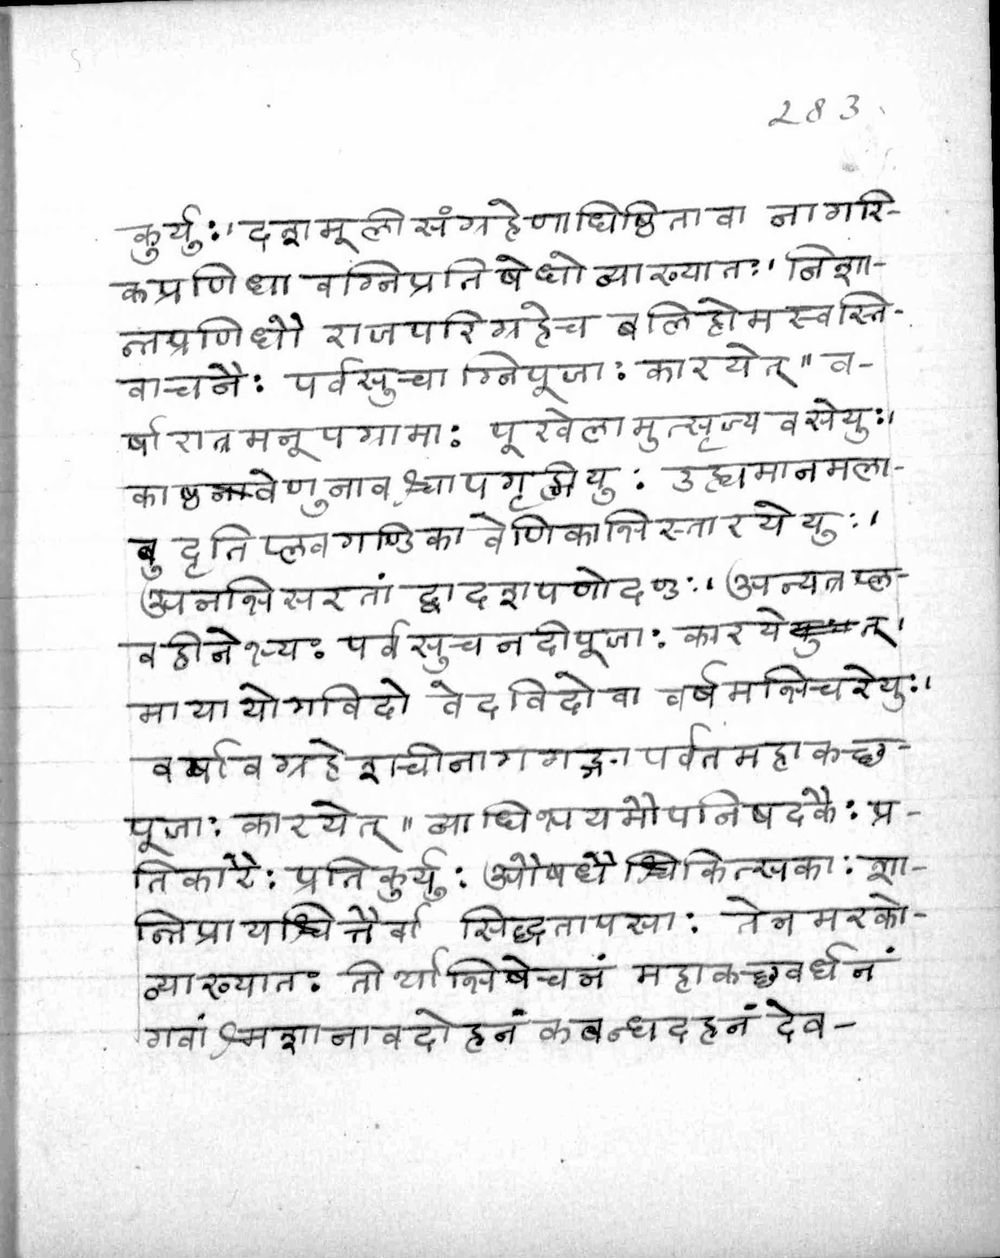 283
कुर्युः।दशमूलीसंग्रहेणाधिष्ठितावा नागरि-
कप्रणिधा वग्निप्रतिषेधोव्याख्यातः।निशा-
न्तप्रणिधौ राजपरिग्रहेच बलिहोमस्वस्ति-
वाचनैः पर्वसुचाग्निपूजाः कारयेत्॥व-
र्षारात्रमनूपग्रामाः पूरवेलामुत्सृज्य वसेयुः।
काष्ठवेणुनावश्चापगृह्णीयुः उह्यमानमला-
बुदृतिप्लवगण्डिकावेणिकाभिस्तारयेयुः।
अनभिसरतां द्वादशपणोदण्डः।अन्यत्रप्ल-
वहीनेभ्यः पर्वसुचनदीपूजाः कारयेत्।
मायायोगविदो वेदविदोवा वर्षमभिचरेयुः।
वर्षावग्रहेशचीनागगङ्गापर्वतमहाकच्छ-
पूजाः कारयेत्॥व्याधिभयमौपनिषदकैः प्र-
तिकारैः प्रतिकुर्युः औषधैश्चिकित्सकाः शा-
न्तिप्रायश्चित्तैर्वा सिद्धतापसाः तेनमरको-
व्याख्यातः तीर्थाभिषेचनं महाकच्छवर्धनं
गवां श्मशानावदोहनं कबन्धदहनं देव-